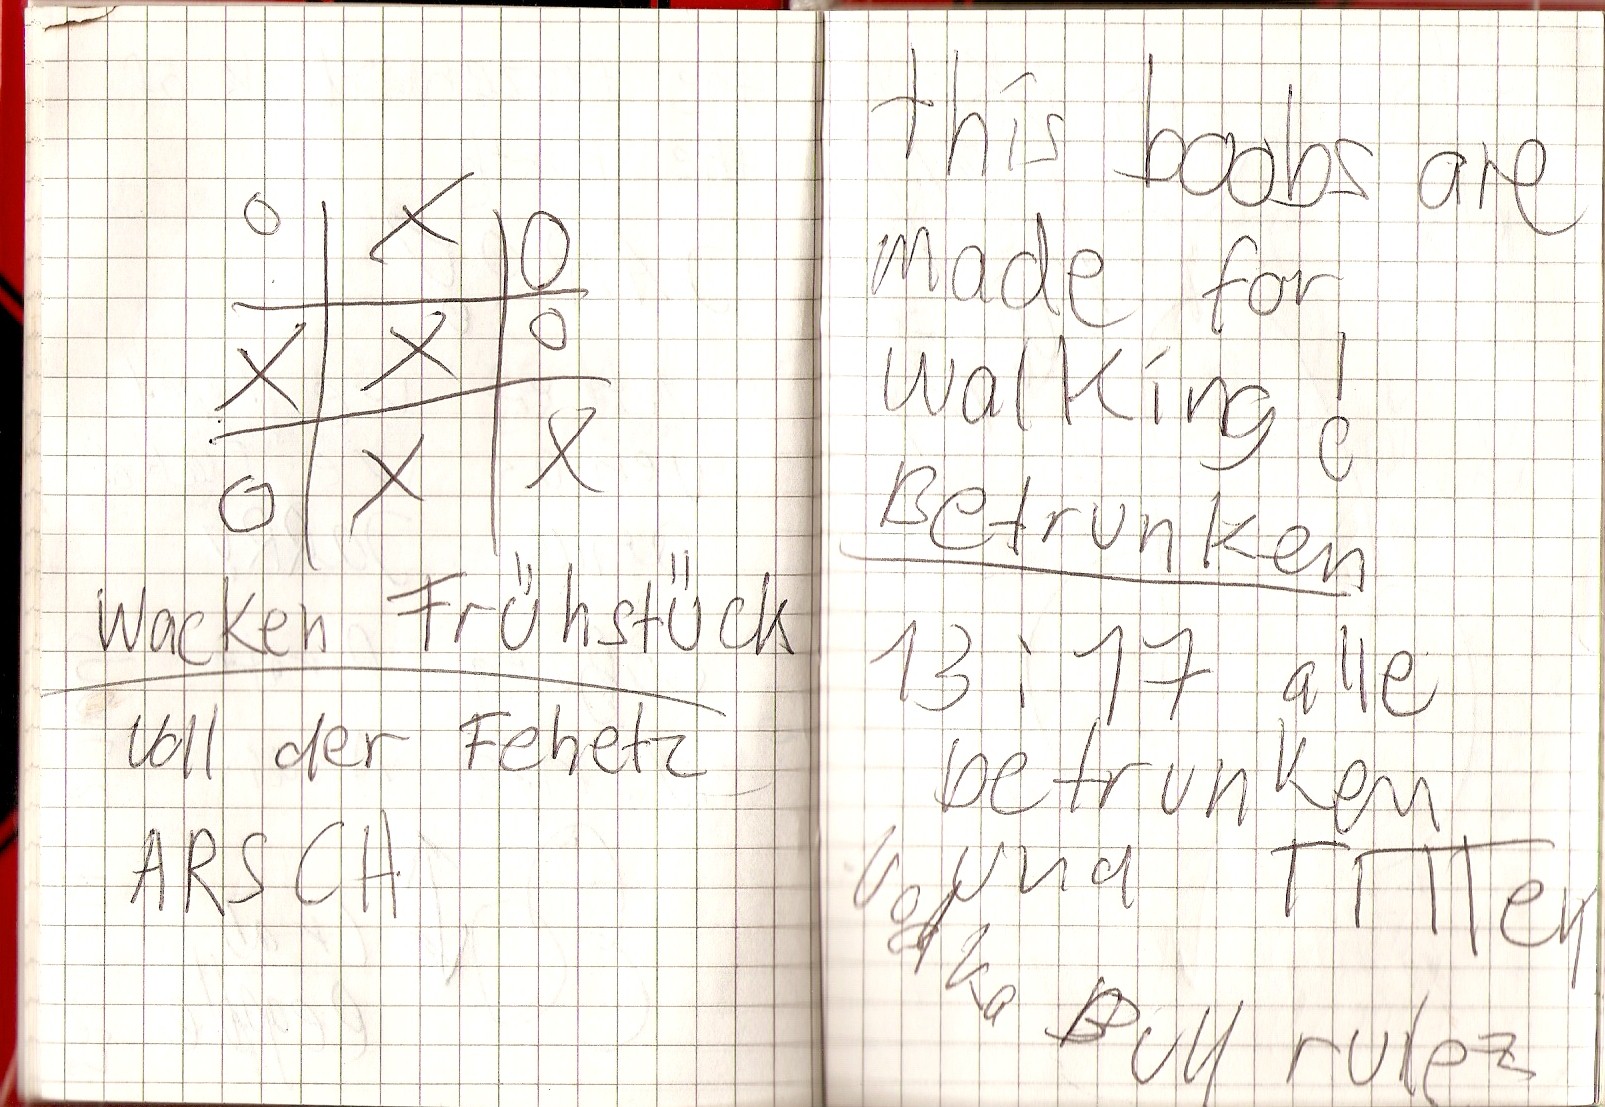 O X O
X X O
O X X
Wacken Frühstück
Voll der Fehetz
ARSCH
this boobs are
made for
walking!
Betrunken
13:17 alle
betrunken
und TITTen
Vodka
Bull rulez